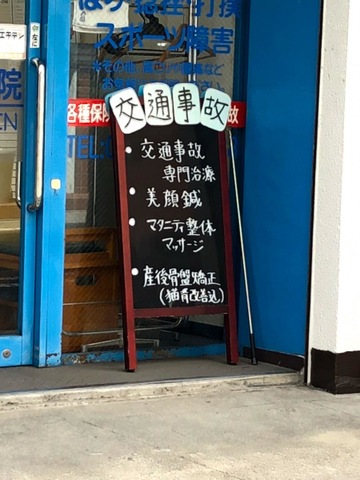 スポーツ障害
院
各種保険
交通事故
故
EN
TEL
・交通事故
専門治療
・美顔鍼
・マタニティ整体
マッサージ
・産後骨盤矯正
(猫背改善込)